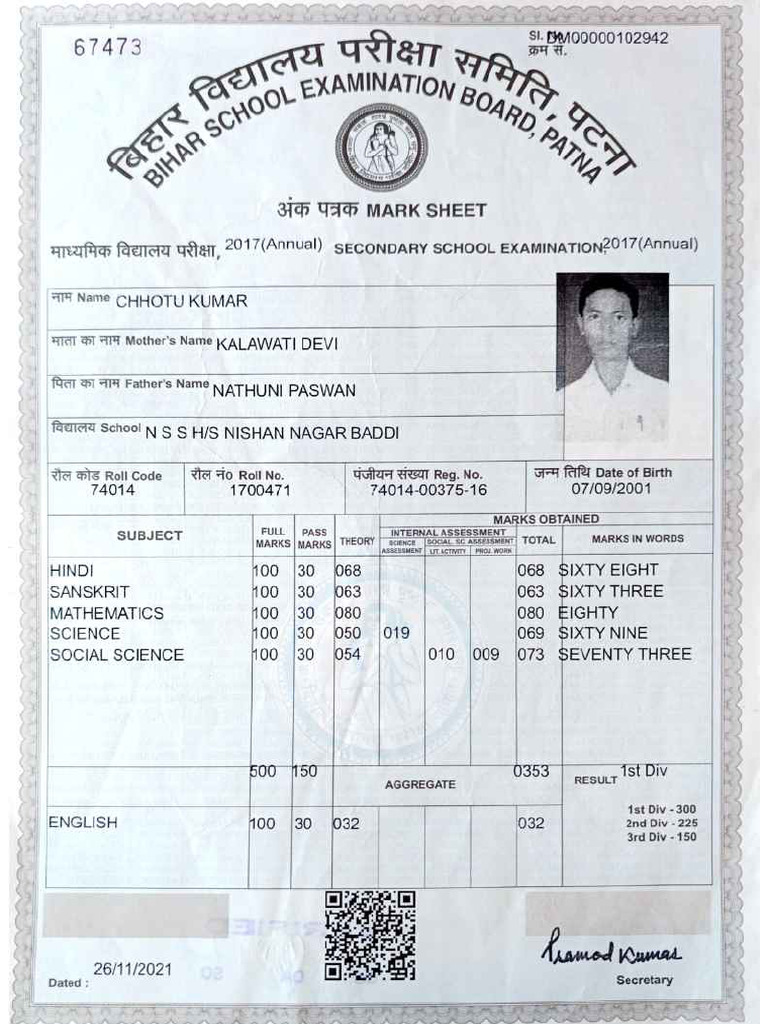 67473
Sl. No. DM00000102942
क्रम सं.
बिहार विद्यालय परीक्षा समिति, पटना
BIHAR SCHOOL EXAMINATION BOARD, PATNA
अंक पत्रक MARK SHEET
माध्यमिक विद्यालय परीक्षा, 2017(Annual) SECONDARY SCHOOL EXAMINATION, 2017(Annual)
नाम Name CHHOTU KUMAR
माता का नाम Mother's Name KALAWATI DEVI
पिता का नाम Father's Name NATHUNI PASWAN
विद्यालय School N S S H/S NISHAN NAGAR BADDI
रौल कोड Roll Code रौल नं० Roll No. पंजीयन संख्या Reg. No. जन्म तिथि Date of Birth
74014 1700471 74014-00375-16 07/09/2001
SUBJECT FULL MARKS PASS MARKS THEORY MARKS OBTAINED
INTERNAL ASSESSMENT TOTAL MARKS IN WORDS
SCIENCE ASSESSMENT SOCIAL SC ASSESSMENT
LIT. ACTIVITY PROJ. WORK
HINDI 100 30 068 068 SIXTY EIGHT
SANSKRIT 100 30 063 063 SIXTY THREE
MATHEMATICS 100 30 080 080 EIGHTY
SCIENCE 100 30 050 019 069 SIXTY NINE
SOCIAL SCIENCE 100 30 054 010 009 073 SEVENTY THREE
500 150 AGGREGATE 0353 RESULT 1st Div
ENGLISH 100 30 032 032
1st Div - 300
2nd Div - 225
3rd Div - 150
Dated : 26/11/2021
Pramod Kumar
Secretary